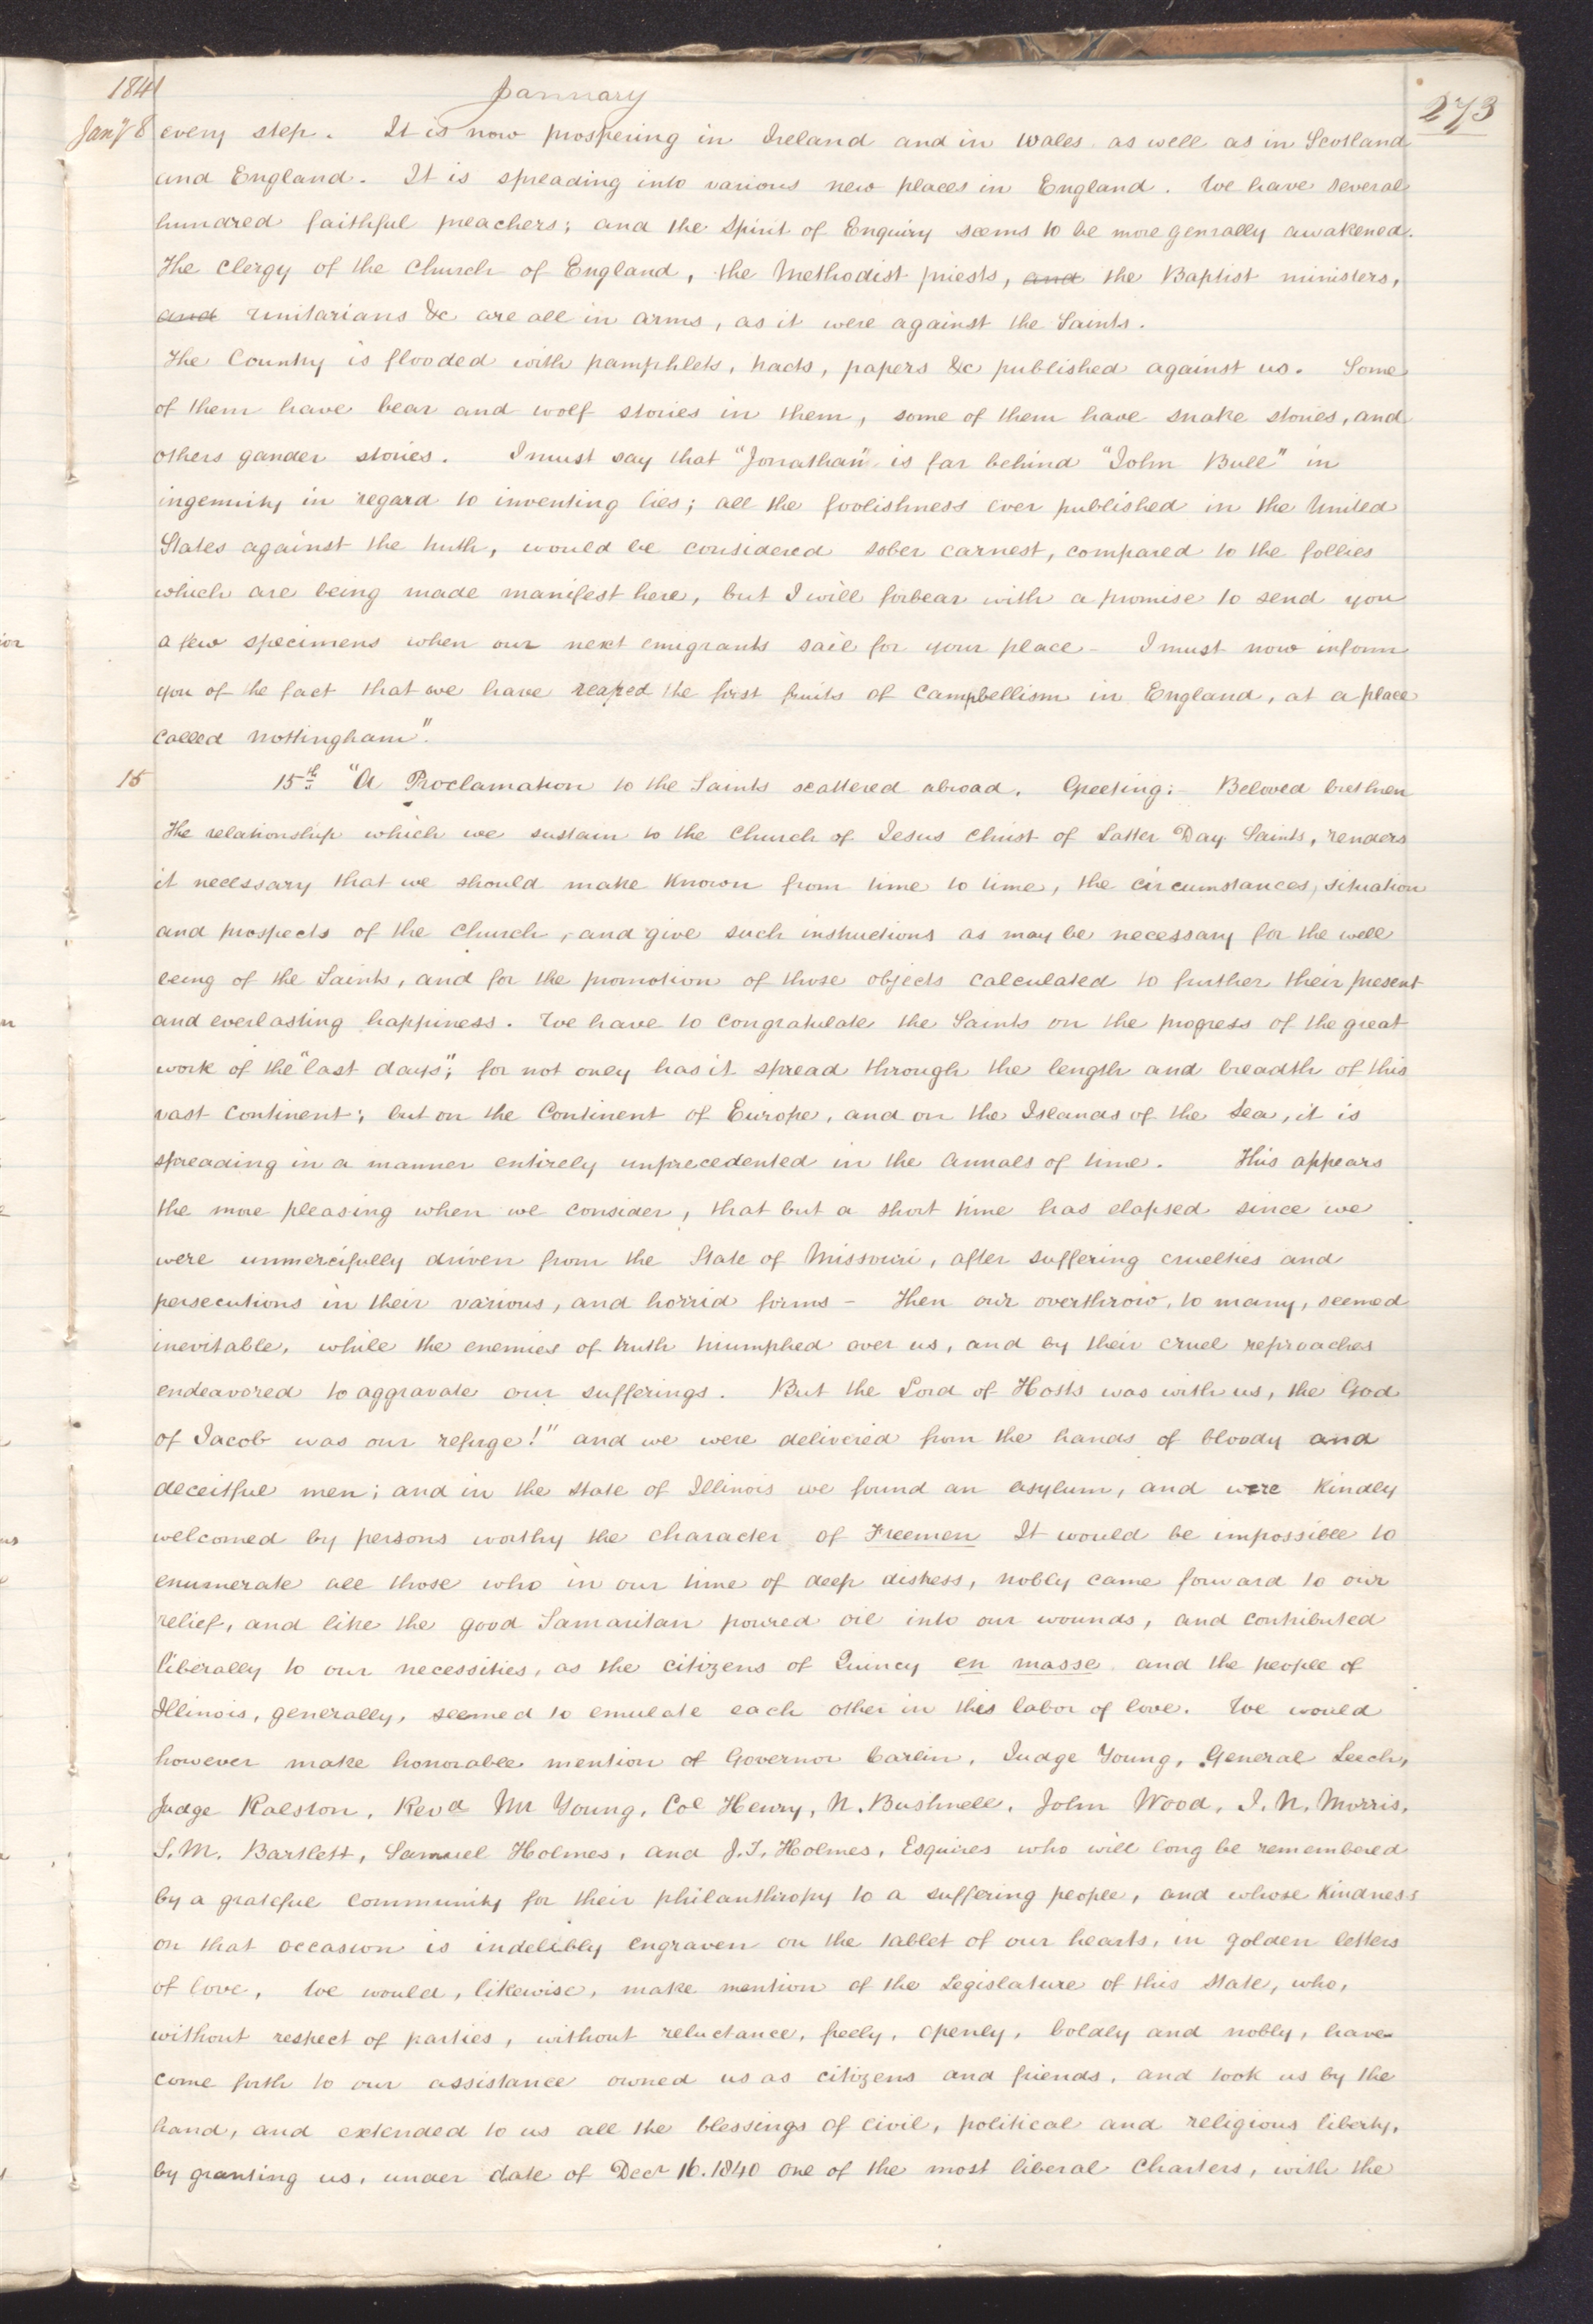 1841
January
273
Jany 8
every step. It is now prospering in Ireland and in Wales as well as in Scotland
and England. It is spreading into various new places in England. We have several
hundred faithful preachers; and the Spirit of Enquiry seems to be more genrally awakened.
The clergy of the Church of England, the Methodist priests, and the Baptist ministers,
and Unitarians &c are all in arms, as it were against the Saints.
The Country is flooded with pamphlets, tracts, papers &c published against us. Some
of them have bear and wolf stories in them, some of them have snake stories, and
others gander stories. I must say that "Jonathan" is far behind "John Bull" in
ingenuity in regard to inventing lies; all the foolishness ever published in the United
States against the truth, would be considered sober earnest, compared to the follies
which are being made manifest here, but I will forbear with a promise to send you
a few specimens when our next emigrants sail for your place - I must now inform
you of the fact that we have reaped the first fruits of Campbellism in England, at a place
called Nottingham".
15
15th "A Proclamation to the Saints scattered abroad. Greeting:- Beloved brethren
The relationship which we sustain to the Church of Jesus Christ of Latter Day Saints, renders
it necessary that we should make known from time to time, the circumstances, situation
and prospects of the church, and give such instructions as may be necessary for the well
being of the Saints, and for the promotion of those objects calculated to further their present
and everlasting happiness. We have to congratulate the Saints on the progress of the great
work of the "last days"; for not only has it spread through the length and breadth of this
vast continent; but on the Continent of Europe, and on the Islands of the Sea, it is
spreading in a manner entirely unprecedented in the annals of time. This appears
the more pleasing when we consider, that but a short time has elapsed since we
were unmercifully driven from the State of Missouri, after suffering cruelties and
persecutions in their various, and horrid forms - Then our overthrow, to many, seemed
inevitable, while the enemies of truth triumphed over us, and by their cruel reproaches
endeavored to aggravate our sufferings. But the Lord of Hosts was with us, the God
of Jacob was our refuge!" and we were delivered from the hands of bloody and
deceitful men; and in the State of Illinois we found an asylum, and were kindly
welcomed by persons worthy the character of Freemen It would be impossible to
enumerate all those who in our time of deep distress, nobly came forward to our
relief, and like the good Samaritan poured oil into our wounds, and contributed
liberally to our necessities, as the citizens of Quincy en masse and the people of
Illinois, generally, seemed to emulate each other in this labor of love. We would
however make honorable mention of Governor Carlin, Judge Young, General Leech,
Judge Ralston, Revd Mr Young, Col Henry, N. Bushnell, John Wood, I. N. Morris,
S. M. Bartlett, Samuel Holmes, and J. T. Holmes, Esquires who will long be remembered
by a grateful community for their philanthropy to a suffering people, and whose kindness
on that occasion is indelibly engraven on the tablet of our hearts, in golden letters
of love, We would, likewise, make mention of the Legislature of this State, who,
without respect of parties, without reluctance, freely, openly, boldly and nobly, have
come forth to our assistance owned us as citizens and friends, and took us by the
hand, and extended to us all the blessings of civil, political and religious liberty,
by granting us, under date of Decr 16. 1840 one of the most liberal Charters, with the